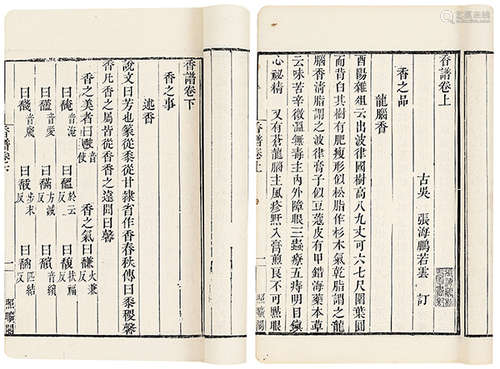 香譜卷上
古吳 張海鵬若雲 訂
香之品
龍腦香
酉陽雜俎云出波律國樹高八九丈可六七尺圍葉圓
而背白其樹有肥瘦形似松脂作杉木氣乾脂謂之龍
腦香清脂謂之波律膏子似豆蔻皮有甲錯海藥本草
云味苦辛微溫無毒主內外障眼三蟲療五痔明目鎮
心祕精又有蒼龍腦主風疹䵟入膏煎良不可點眼
香譜卷上
一
香譜卷下
香之事
述香
說文曰芳也篆從黍從甘隸省作香春秋傳曰黍稷馨
香凡香之屬皆從香香之遠聞曰馨
香之美者曰 音使 香之氣曰馦 火兼反
曰馣 音淹 曰馧 於云反 曰馥 扶福反
曰馤 音愛 曰 方滅反 曰 音繽
曰 音 曰馛 步末反 曰 匹結反
香譜卷下
一
照曠閣